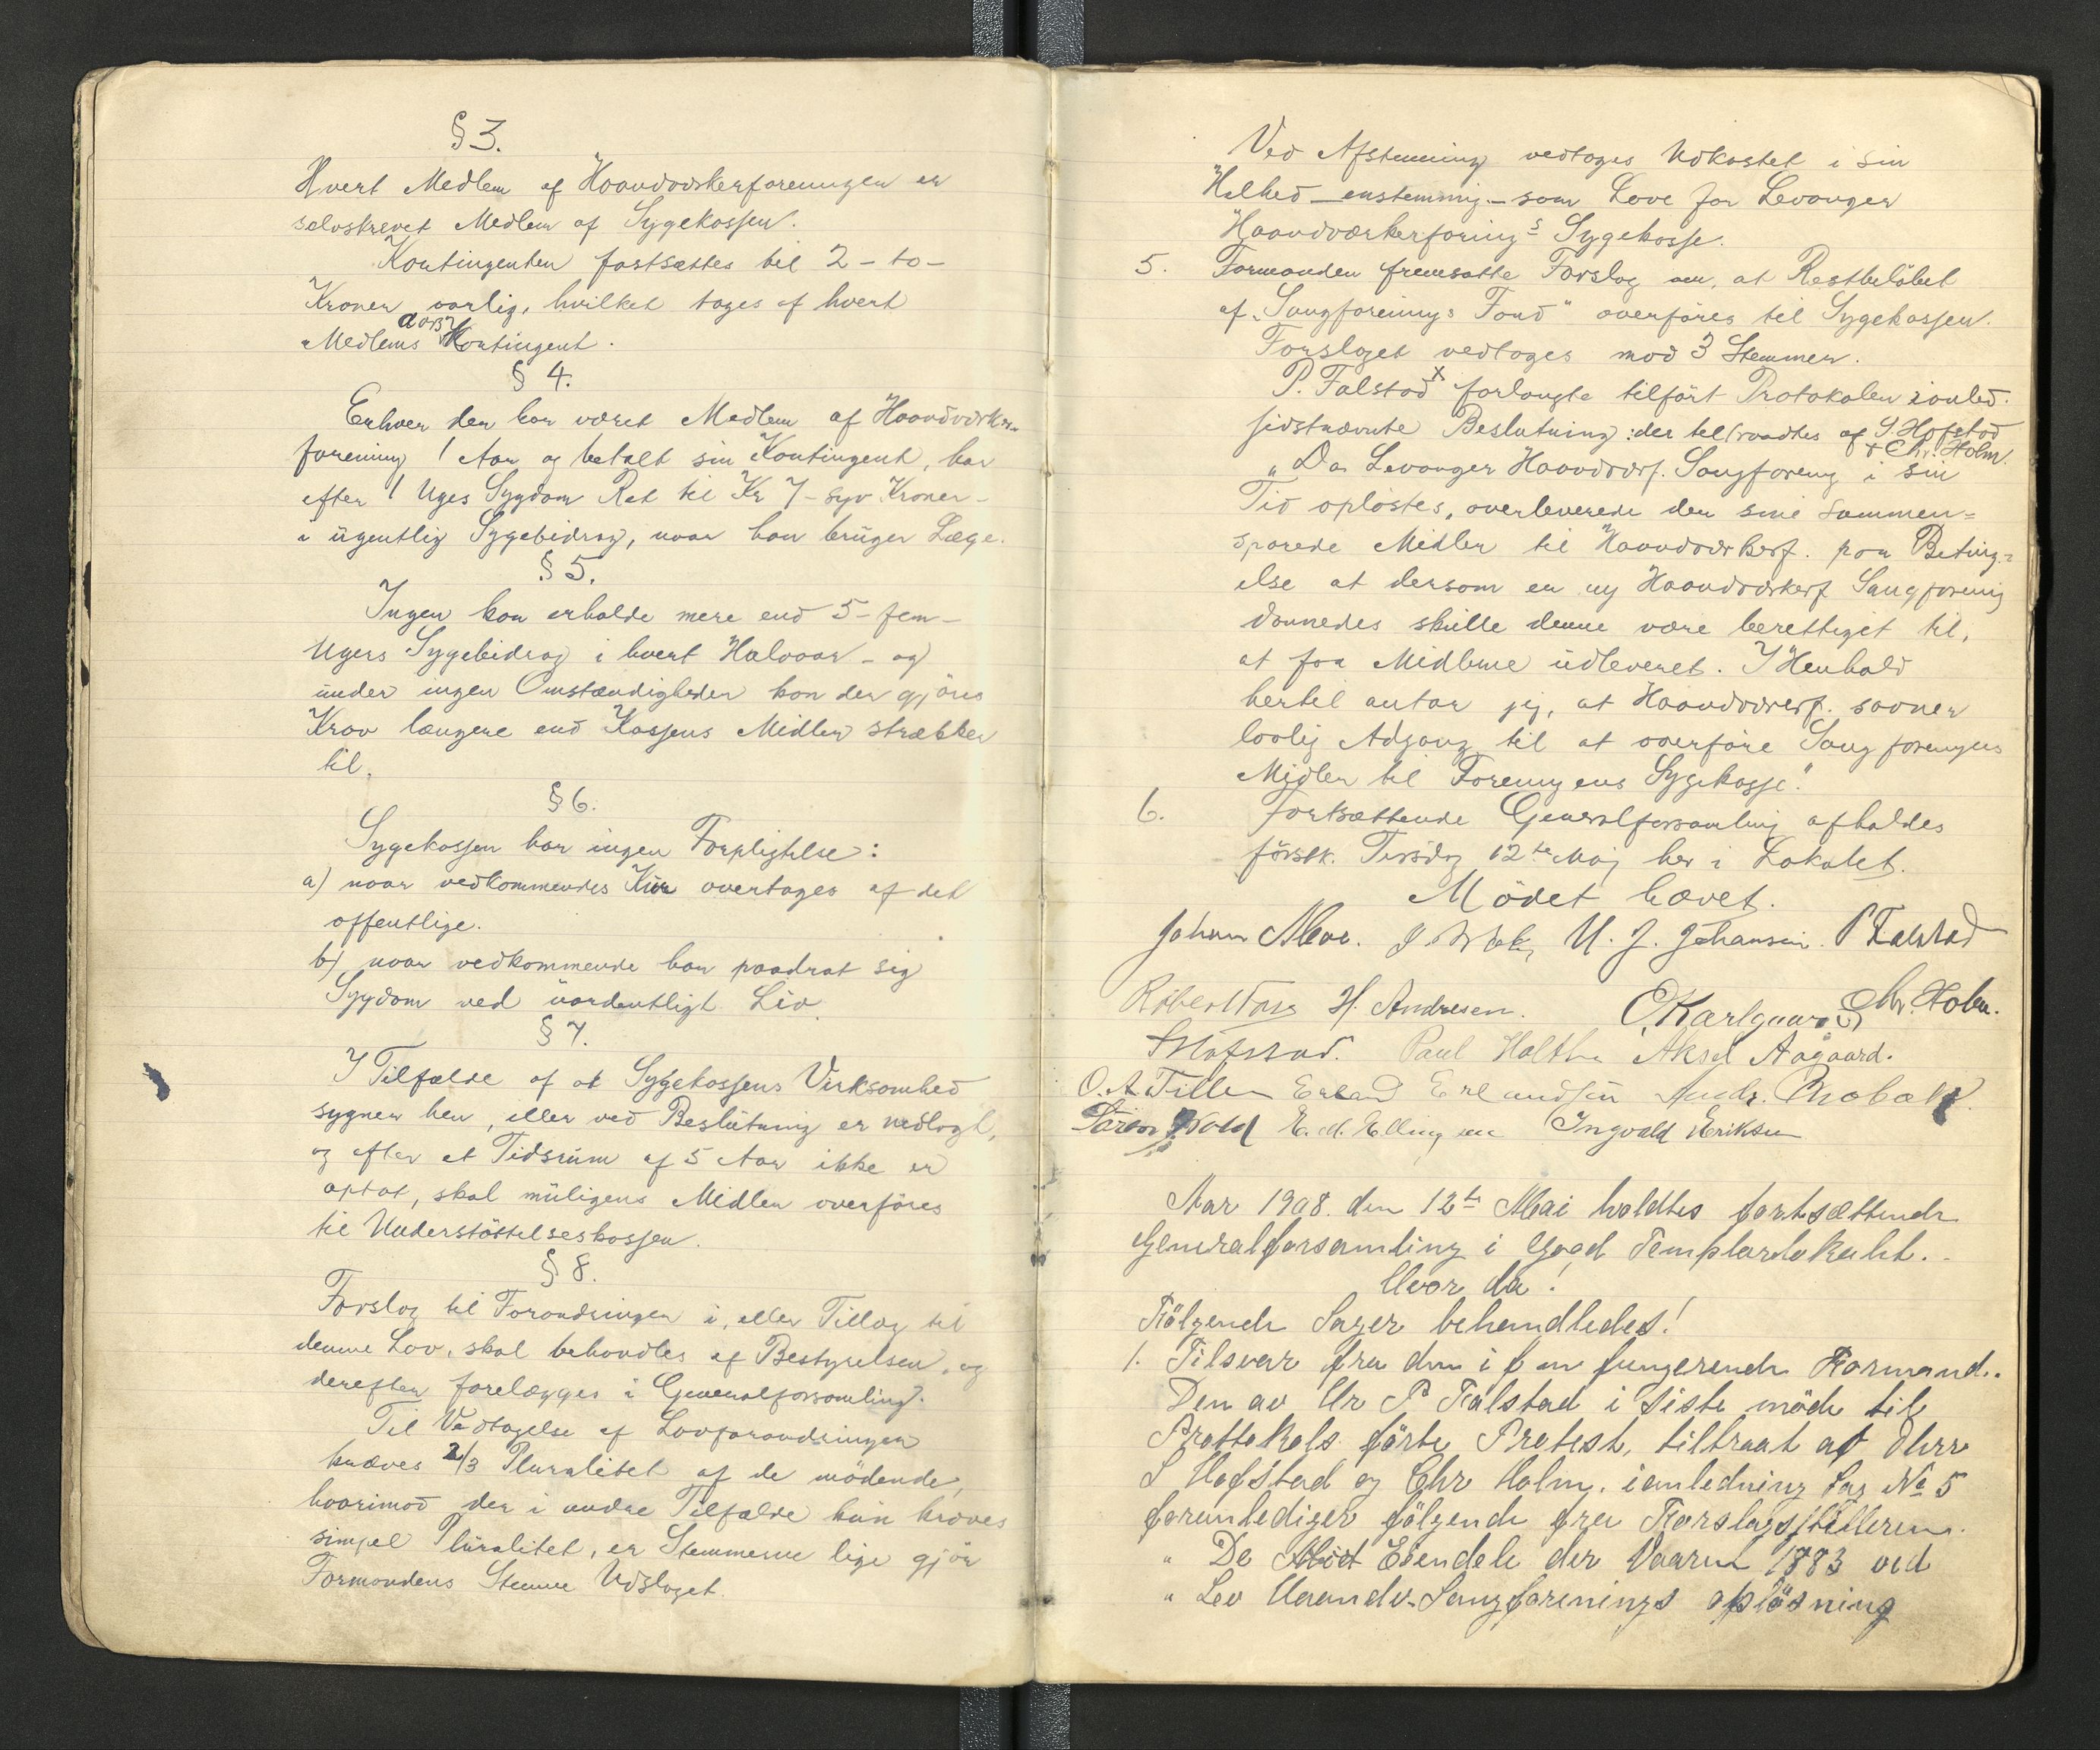 § 3.
Hvert Medlem af Haandværkerforeningen er
selvskrevet Medlem af Sygekassen.
Kontingenten fastsættes til 2 - to -
Kroner aarlig, hvilket tages af hvert
Medlems Aars Kontingent.
§ 4.
Enhver der har været Medlem af Haandværker-
forening 1 Aar og betalt sin Kontingent, har
efter 1 Uges Sygdom Ret til Kr 7 - syv Kroner -
i ugentlig Sygebidrag, naar han bruger Læge.
§ 5.
Ingen kan erholde mere end 5 - fem -
Ugers Sygebidrag i hvert Halvaar - og
under ingen Omstændigheder kan der gjöres
Krav længere end Kassens Midler strækker
til.
§ 6.
Sygekassen har ingen Forpligtelse:
a) naar vedkommendes Kur overtages af det
offentlige.
b) naar vedkommende har paadrat sig
Sygdom ved uordentligt Liv.
§ 7.
I Tilfælde af at Sygekassens Virksomhed
sygner hen, eller ved Beslutning er nedlagt,
og efter et Tidsrum af 5 Aar ikke er
optat, skal muligens Midler overföres
til Understöttelseskassen.
§ 8.
Forslag til Forandringer i, eller Tillæg til
denne Lov, skal behandles af Bestyrelsen, og
derefter forelægges i Generalforsamling.
Til Vedtagelse af Lovforandringer
kræves 2/3 Pluralitet af de mödende,
hvorimod der i andre Tilfælde kun kræves
simpel Pluralitet, er Stemmerne lige gjör
Formandens Stemme Udslaget.
Ved Afstemning vedtoges Udkastet i sin
Helhed - enstemmig - som Love for Levanger
Haandværkerforings Sygekasse.
5. Formanden fremsatte Forslag om, at Restbelöbet
af "Sangforenings Fond" overföres til Sygekassen.
Forslaget vedtoges mod 3 Stemmer.
P. Falstad x forlangte tilfört Protokolen ianled.
sidstnævnte Beslutning: der teltraadtes af S. Hofstad
+ Chr. Holm.
"Da Levanger Haandværf. Sangforeng i sin
Tid oplöstes, overleverede den sine sammen=
sparede Midler til Haandværkerf. paa Beting=
else at dersom en ny Haandværkerf Sangforenig
dannedes skulle denne være berettiget til,
at faa Midlerne udleveret. I Henhold
hertil antar jeg, at Haandværerf. savner
lovlig Adgang til at overföre Sangforengens
Midler til Foreningens Sygekasse."
6. Fortsættende Generalforsamling afholdes
förstk. Tirsdag 12te Maj her i Lokalet.
Mödet hævet.
Johan Moe. U. J. Johansen. P Falstad
Robert H. Andresen. O Karlgaard Chr. Holm.
S Hofstad. Paul Holthe Aksel Aagaard.
O. A. Tiller Erland Erlandsen
E. d. Ellingsen Ingvald Eriksen
Aar 1908. den 12te Mai holdtes fortsættende
Generalforsamling i Good Templarlokalet.
Hvor da!
Fölgende Sager behandledes!
1. Tilsvar fra den i f m fungerende Formand.
Den av Hr P Falstad i siste möde til
Prottokolsförte Protest, tiltraat af dhrr
S Hofstad og Chr Holm, ianledning Sag No 5
foranlediger fölgende fra Forslagsstilleren.
" De Eiendele der Vaaren 1883 ved
" Lev Haandv. Sangforenings oplösning